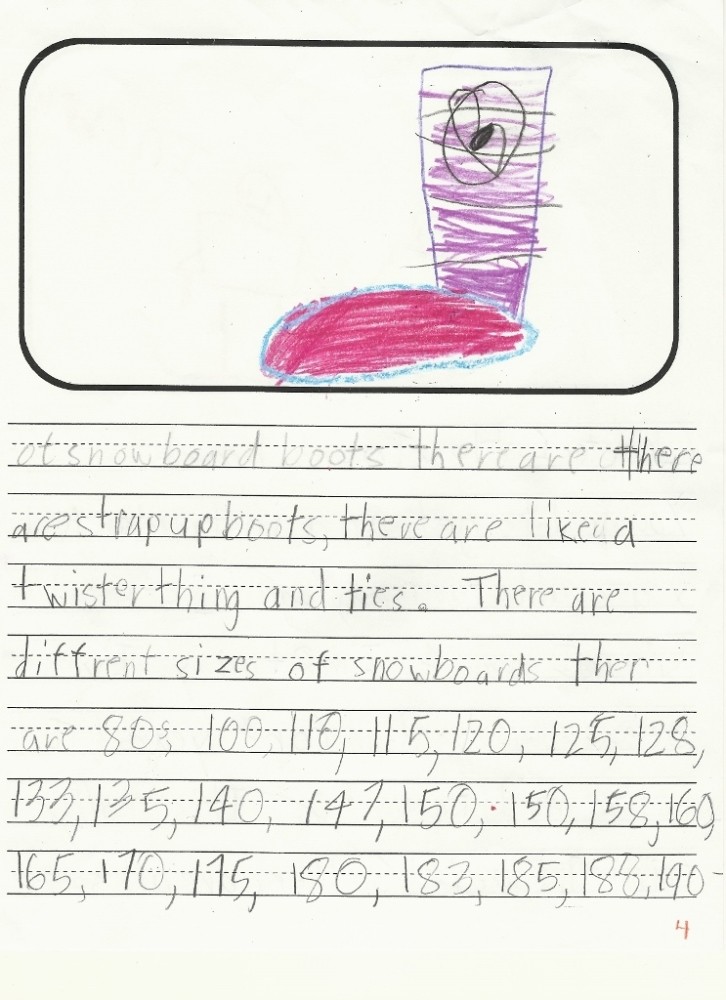 of snowboard boots there are there
are strap up boots, there are like a
twister thing and ties. There are
diffrent sizes of snowboards ther
are 80, 100, 110, 115, 120, 125, 128,
133, 135, 140, 147, 150, 150, 158, 160,
165, 170, 175, 180, 183, 185, 188, 190-
4